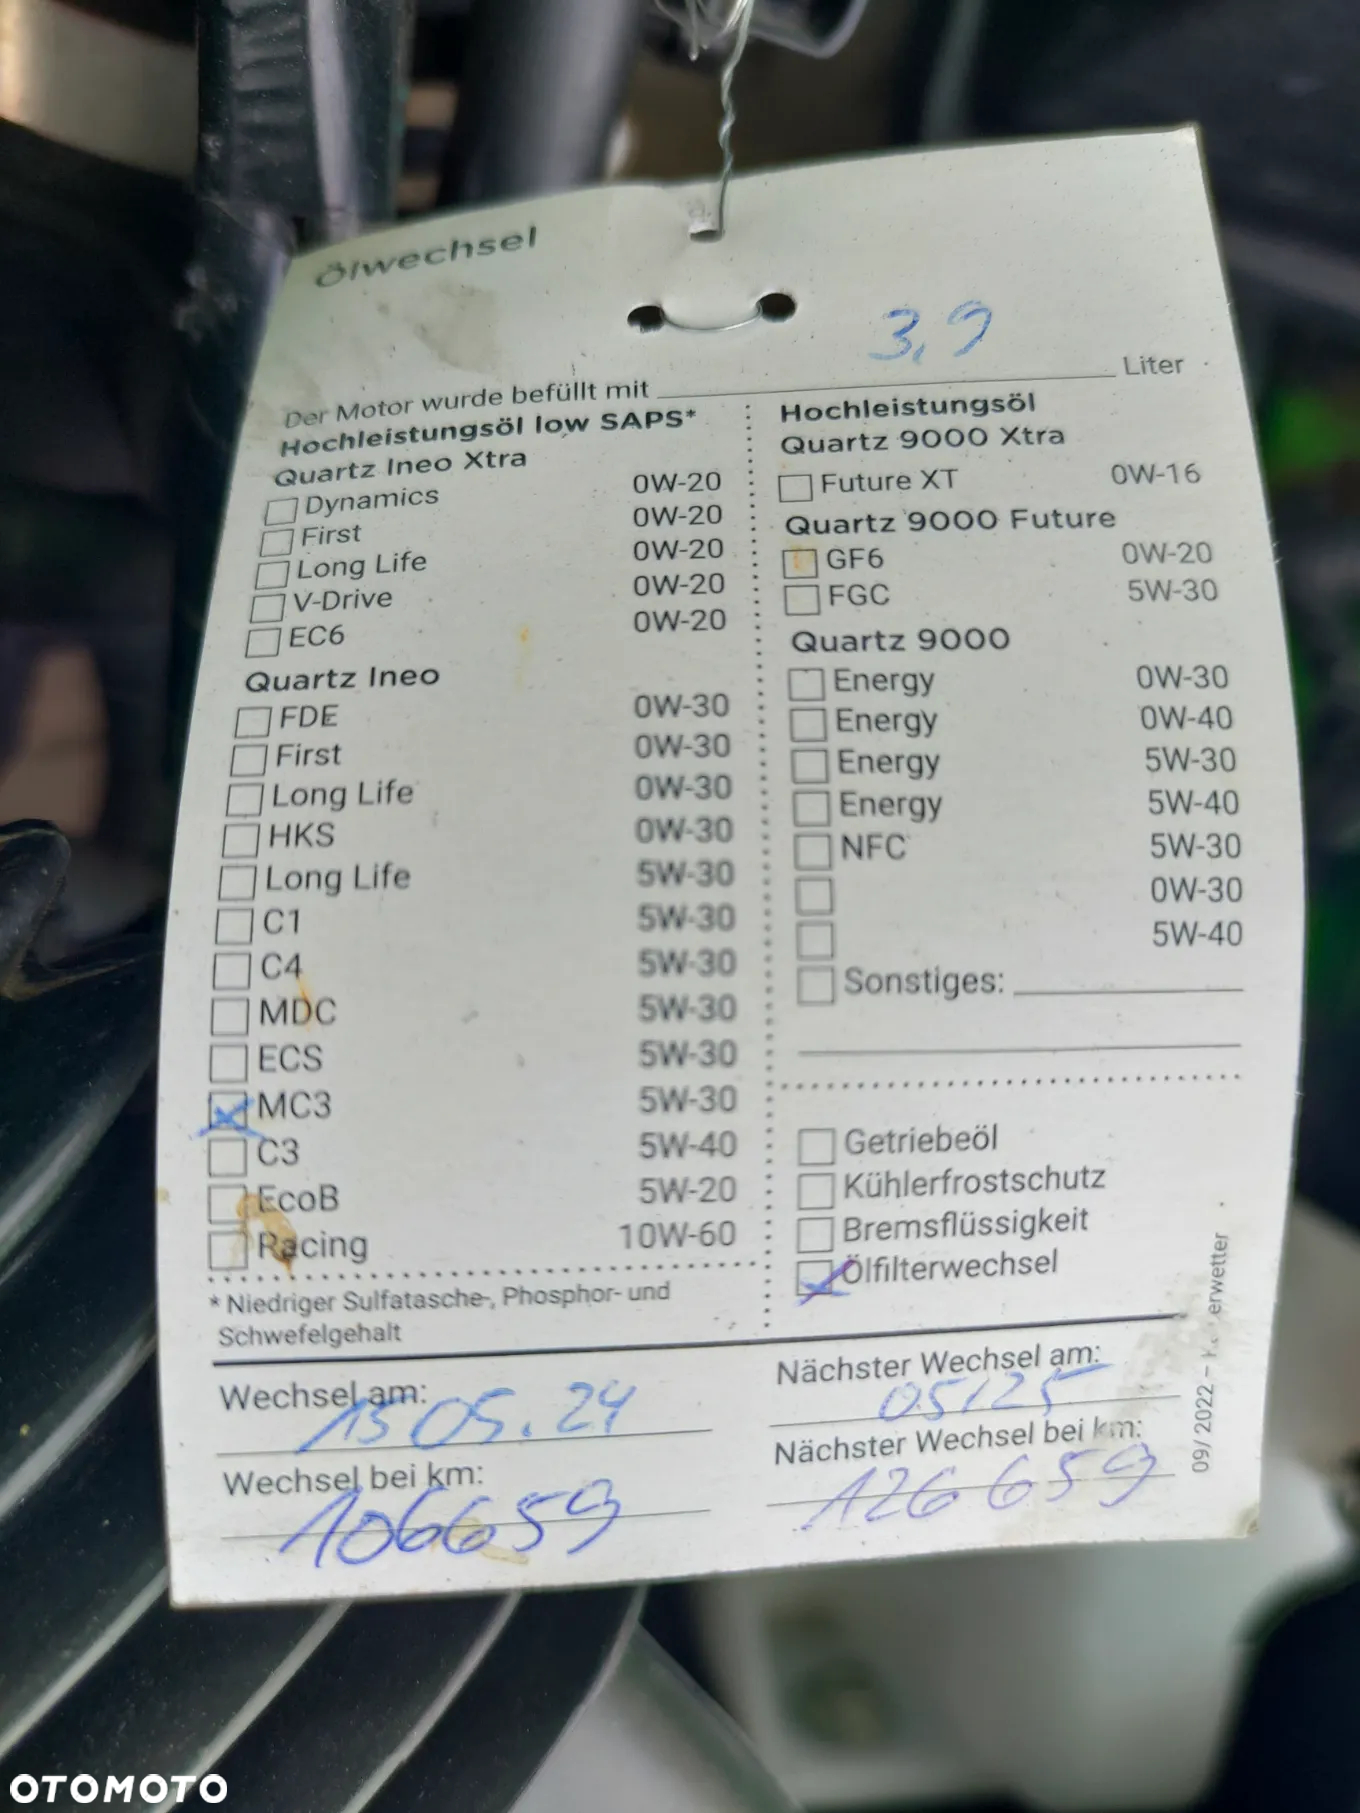 Ölwechsel
3,9
Der Motor wurde befüllt mit Liter
Hochleistungsöl low SAPS*
Quartz Ineo Xtra
Dynamics 0W-20
First 0W-20
Long Life 0W-20
V-Drive 0W-20
EC6 0W-20
Quartz Ineo
FDE 0W-30
First 0W-30
Long Life 0W-30
HKS 0W-30
Long Life 5W-30
C1 5W-30
C4 5W-30
MDC 5W-30
ECS 5W-30
MC3 5W-30
C3 5W-40
EcoB 5W-20
Racing 10W-60
* Niedriger Sulfatasche-, Phosphor- und
Schwefelgehalt
Hochleistungsöl
Quartz 9000 Xtra
Future XT 0W-16
Quartz 9000 Future
GF6 0W-20
FGC 5W-30
Quartz 9000
Energy 0W-30
Energy 0W-40
Energy 5W-30
Energy 5W-40
NFC 5W-30
0W-30
5W-40
Sonstiges:
Getriebeöl
Kühlerfrostschutz
Bremsflüssigkeit
Ölfilterwechsel
Wechsel am:
15 05.24
Wechsel bei km:
106659
Nächster Wechsel am:
05/25
Nächster Wechsel bei km:
126659
09/2022 –
OTOMOTO